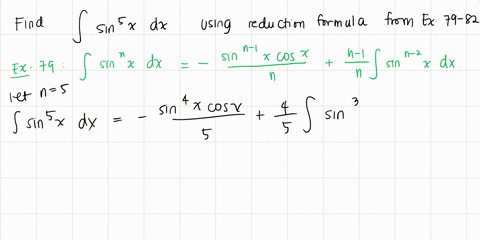 Find ∫ sin⁵x dx using reduction formula from Ex. 79-82
Ex. 79: ∫ sinⁿx dx = - (sinⁿ⁻¹ x cos x)/n + (n-1)/n ∫ sinⁿ⁻² x dx
let n=5
∫ sin⁵x dx = - (sin⁴x cosx)/5 + 4/5 ∫ sin³